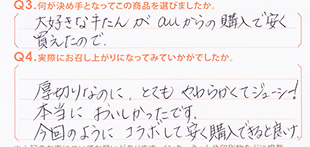 Q3.何が決め手となってこの商品を選びましたか。
大好きな牛たんが auからの購入で安く
買えたので.
Q4.実際にお召し上がりになってみていかがでしたか。
厚切りなのに、とても やわらかくてジューシー!
本当に おいしかったです.
今回のように コラボして安く購入できると良いけ